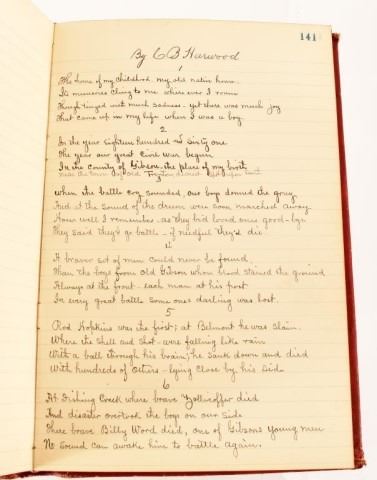 141
By C B Harwood
1
The home of my childhood, my old native home.
Its memories cling to me where ever I roam
Though tinged with much sadness - yet there was much joy
That came up in my life when I was a boy.
2
In the year Eighteen hundred and sixty one
The year our great Civil War begun
In the County of Gibson - the place of my birth
Near the town of old
when the battle cry sounded, our boys donned the gray
And at the sound of the drum were soon marched away.
How well I remember - as they bid loved ones good-bye
They said they'd go battle - if needful they'd die
4
A braver set of men could never be found,
Than the boys from old Gibson whose blood stained the ground
Always at the front - each man at his post
In every great battle some ones darling was lost.
5
Rod Hopkins was the first; at Belmont he was slain.
Where the shell and shot - were falling like rain
With a ball through his brain; he sank down and died
With hundreds of others - lying close by his side.
6
At Fishing Creek where brave Zollicoffer died
And disaster overtook the boys on our side
There brave Billy Word died, one of Gibsons young men
No sound can awake him to battle again.